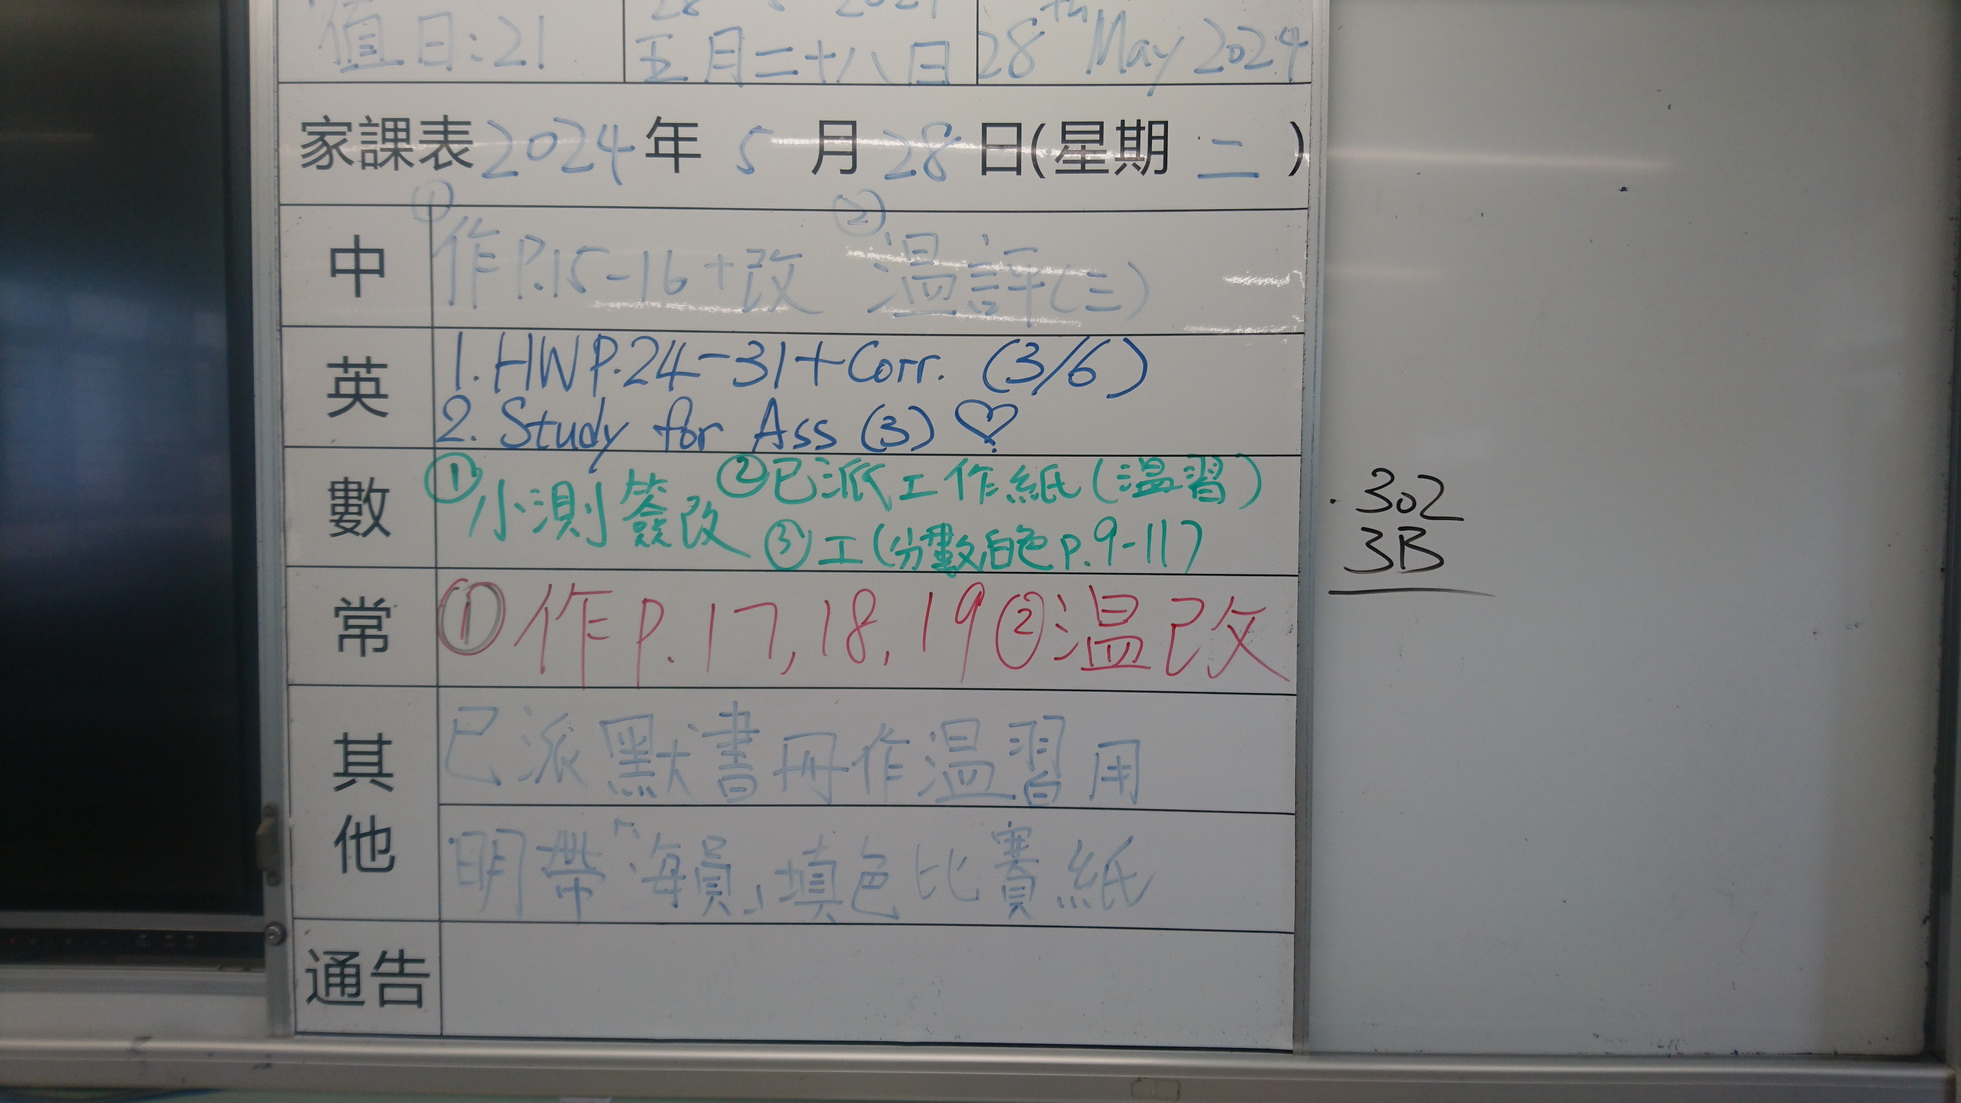 值日:21
五月二十八日
28th May 2024
家課表 2024年 5月 28日(星期 二 )
中 ①作P.15-16+改 ②溫評(三)
英 1. HW P.24-31+Corr. (3/6)
2. Study for Ass (3) ♡
數 ①小測簽改 ②已派工作紙(溫習)
③工(分數白色p.9-11)
常 ①作P.17,18,19 ②溫改
其他 已派默書冊作溫習用
明帶「海員」填色比賽紙
通告
302
3B